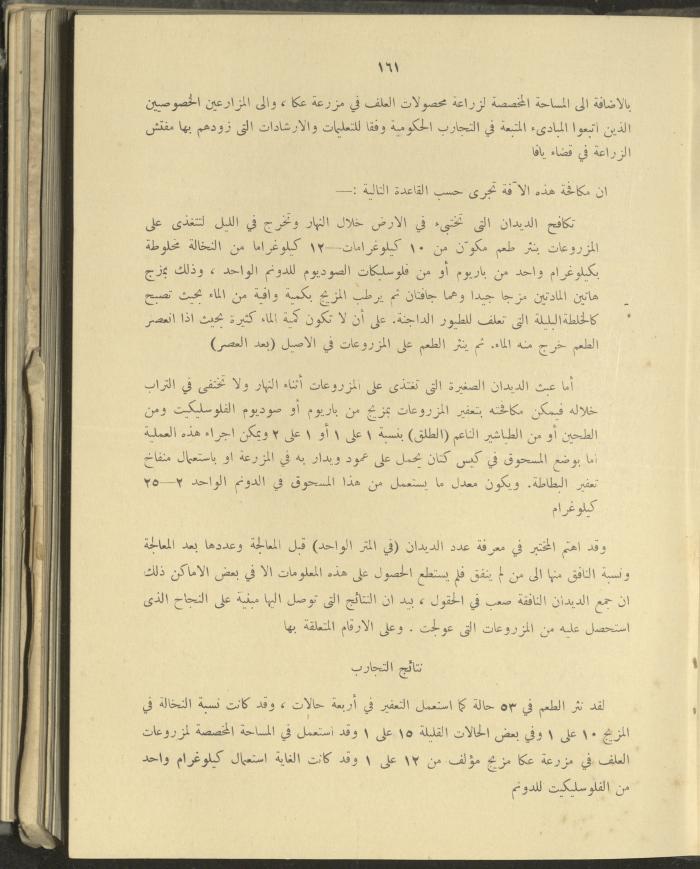 ١٦١
بالاضافة الى المساحة المخصصة لزراعة محصولات العلف في مزرعة عكا ، والى المزارعين الخصوصيين
الذين اتبعوا المبادىء المتبعة في التجارب الحكومية وفقا للتعليمات والارشادات التى زودهم بها مفتش
الزراعة في قضاء يافا
ان مكافحة هذه الآفة تجرى حسب القاعدة التالية :—
تكافح الديدان التى تختبىء في الارض خلال النهار وتخرج في الليل لتتغذى على
المزروعات بنثر طعم مكون من ١٠ كيلوغرامات—١٢ كيلوغراما من النخالة مخلوطة
بكيلوغرام واحد من باريوم أو من فلوسليكات الصوديوم للدونم الواحد ، وذلك بمزج
هاتين المادتين مزجا جيدا وهما جافتان ثم يرطب المزيج بكمية وافية من الماء بحيث تصبح
كالخلطة البليلة التى تعلف للطيور الداجنة. على أن لا تكون كمية الماء كثيرة بحيث اذا انعصر
الطعم خرج منه الماء. ثم ينثر الطعم على المزروعات في الاصيل (بعد العصر)
أما عبث الديدان الصغيرة التى تغتذى على المزروعات أثناء النهار ولا تختفى في التراب
خلاله فيمكن مكافحته بتعفير المزروعات بمزيج من باريوم أو صوديوم الفلوسليكيت ومن
الطحين أو من الطباشير الناعم (الطلق) بنسبة ١ على ١ أو ١ على ٢ ويمكن اجراء هذه العملية
اما بوضع المسحوق في كيس كتان يحمل على عمود ويدار به في المزرعة او باستعمال منفاخ
تعفير البطاطة. ويكون معدل ما يستعمل من هذا المسحوق في الدونم الواحد ٢—٢٥
كيلوغرام
وقد اهتم المختبر في معرفة عدد الديدان (في المتر الواحد) قبل المعالجة وعددها بعد المعالجة
ونسبة النافق منها الى من لم ينفق فلم يستطع الحصول على هذه المعلومات الا في بعض الاماكن ذلك
ان جمع الديدان النافقة صعب في الحقول ، بيد ان النتائج التى توصل اليها مبنية على النجاح الذى
استحصل عليه من المزروعات التى عولجت . وعلى الارقام المتعلقة بها
نتائج التجارب
لقد نثر الطعم في ٥٣ حالة كما استعمل التعفير في أربعة حالات ، وقد كانت نسبة النخالة في
المزيج ١٠ على ١ وفي بعض الحالات القليلة ١٥ على ١ وقد استعمل في المساحة المخصصة لمزروعات
العلف في مزرعة عكا مزيج مؤلف من ١٢ على ١ وقد كانت الغاية استعمال كيلوغرام واحد
من الفلوسليكيت للدونم